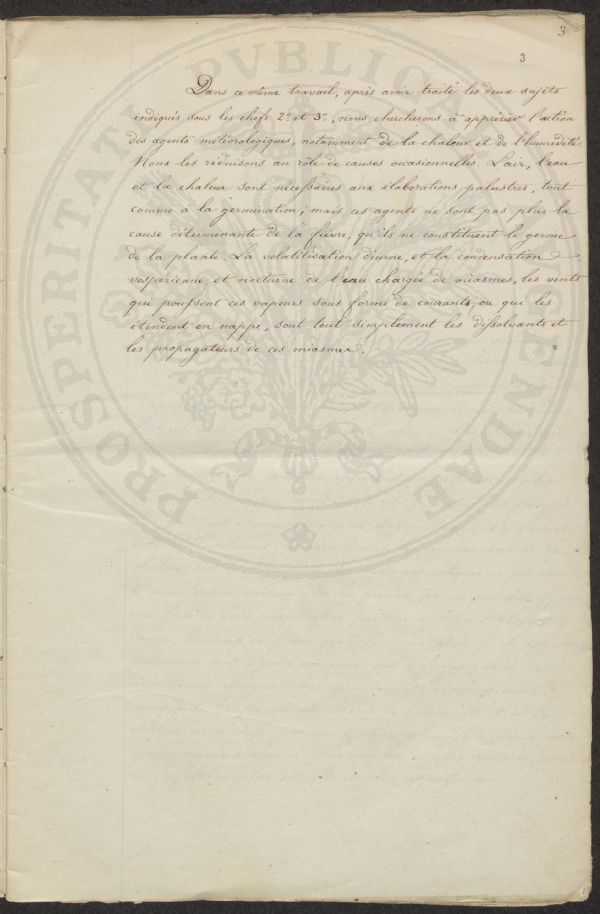 3
3
Dans ce même travail, après avoir traité les deux sujets
indiqués sous les chefs 2º et 3º, nous chercherons à apprécier l'action
des agents météorologiques, notamment de la chaleur et de l'humidité.
Nous les réduisons au rôle de causes occasionnelles. L'air, l'eau
et la chaleur sont nécessaires aux élaborations palustres, tout
comme à la germination; mais ces agents ne sont pas plus la
cause déterminante de la fièvre, qu'ils ne constituent le germe
de la plante. La volatilisation diurne, et la condensation
vespérienne et nocturne de l'eau chargée de miasmes, les vents
qui poussent ces vapeurs sous forme de courants, ou qui les
étendent en nappe, sont tout simplement les dissolvants et
les propagateurs de ces miasmes.
PROSPERITATI PVBLICAE AVGENDAE